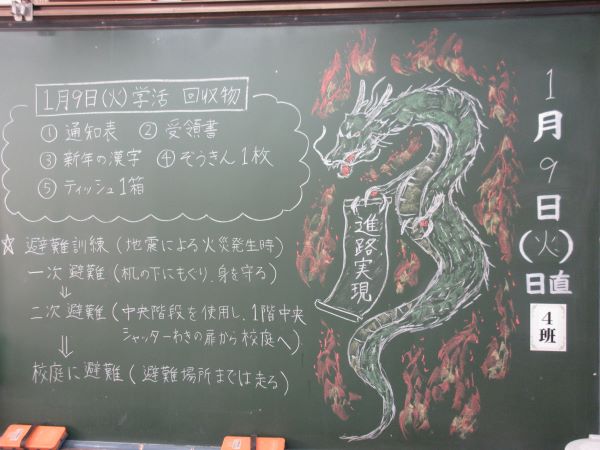 1月9日(火)学活 回収物
① 通知表 ② 受領書
③ 新年の漢字 ④ ぞうきん1枚
⑤ ティッシュ1箱
☆ 避難訓練(地震による火災発生時)
一次避難(机の下にもぐり、身を守る)
⇓
二次避難(中央階段を使用し、1階中央
シャッターわきの扉から校庭へ)
⇓
校庭に避難(避難場所までは走る)
進路実現
1月9日(火)
日直
4班